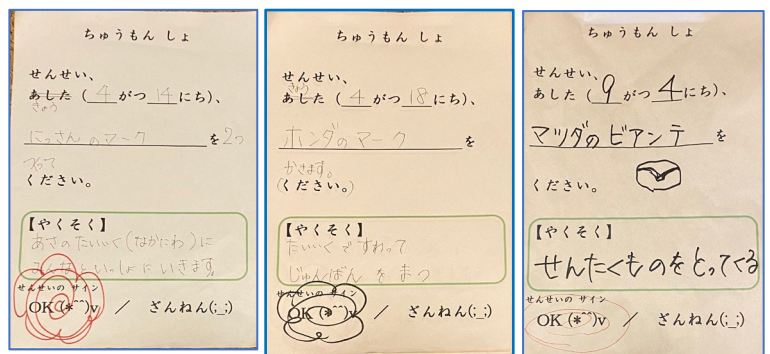 ちゅうもん しょ
せんせい、
あした ( 4 がつ 14 にち)、
きょう
にっさんのマーク を 2つ
つくって
ください。
【やくそく】
あさの たいいく(なかにわ)に
みんなと いっしょに いきます。
せんせいの サイン
OK (*^^)v / ざんねん(;_;)
ちゅうもん しょ
せんせい、
きょう
あした ( 4 がつ 18 にち)、
ホンダのマーク を
かさます。
(ください。)
【やくそく】
たいいくで すわって
じゅんばん を まつ
せんせいの サイン
OK (*^^)v / ざんねん(;_;)
ちゅうもん しょ
せんせい、
あした ( 9 がつ 4 にち)、
マツダのビアンテ を
ください。
【やくそく】
せんたくものをとってくる
せんせいの サイン
OK (*^^)v / ざんねん(;_;)